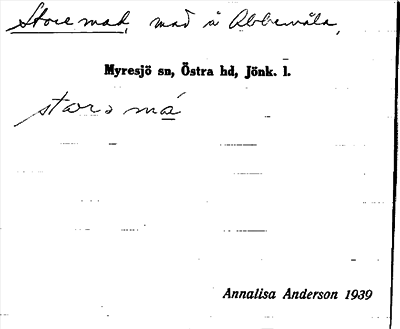 Store mad, mad å Abbemåla,
Myresjö sn, Östra hd, Jönk. l.
storə má
Annalisa Anderson 1939